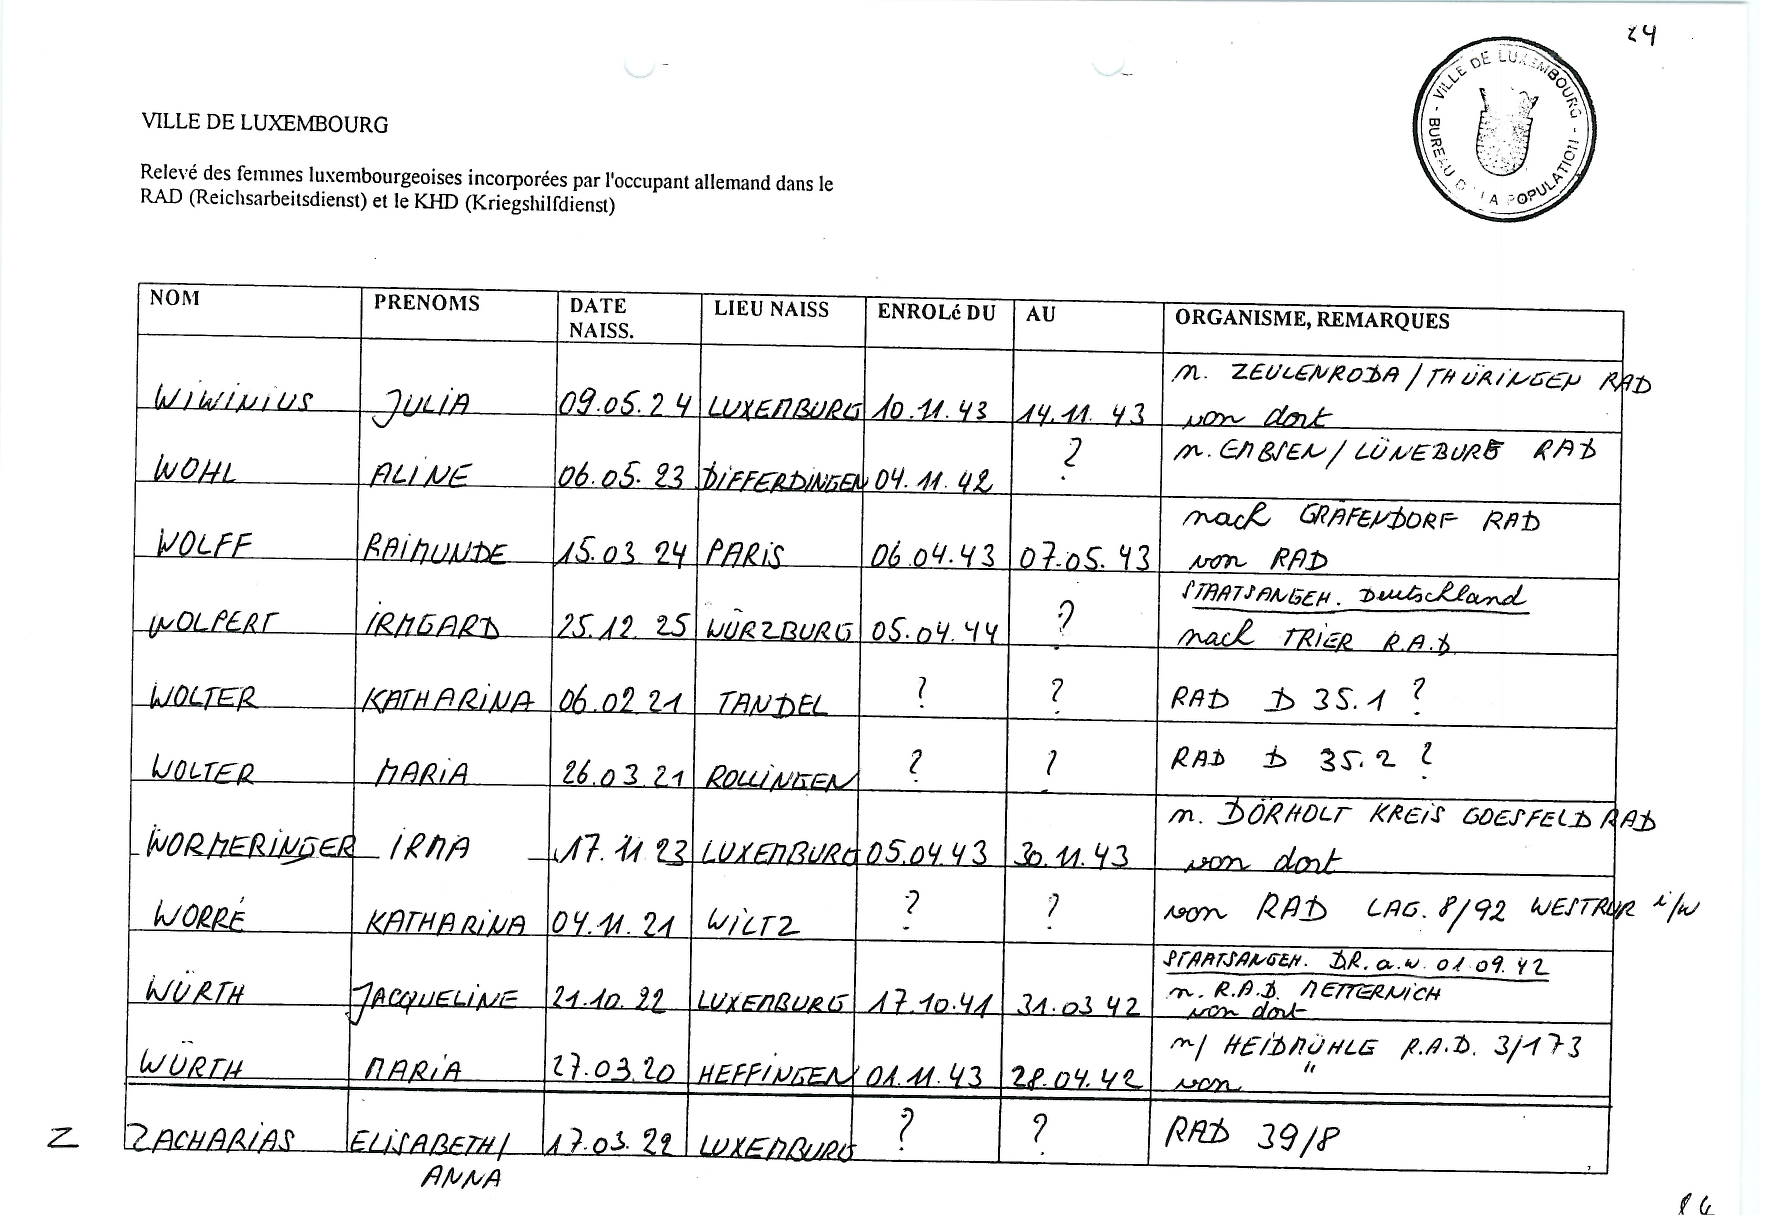 24
VILLE DE LUXEMBOURG - BUREAU D LA POPULATION -
VILLE DE LUXEMBOURG
Relevé des femmes luxembourgeoises incorporées par l'occupant allemand dans le
RAD (Reichsarbeitsdienst) et le KHD (Kriegshilfdienst)
NOM PRENOMS DATE NAISS. LIEU NAISS ENROLé DU AU ORGANISME, REMARQUES
n. ZEULENRODA / THÜRINGEN RAD
WIWINIUS JULIA 09.05.24 LUXEMBURG 10.11.43 14.11.43 von dort
WOHL ALINE 06.05.23 DIFFERDINGEN 04.11.42 ? n. EMBSEN / LÜNEBURG RAD
nach GRÄFENDORF RAD
WOLFF RAIMUNDE 15.03.24 PARIS 06.04.43 07.05.43 von RAD
STAATSANGEH. Deutschland
WOLPERT IRMGARD 25.12.25 WÜRZBURG 05.04.44 ? nach TRIER R.A.D
WOLTER KATHARINA 06.02.21 TANDEL ? ? RAD D 35.1 ?
WOLTER MARIA 26.03.21 ROLLINGEN ? ? RAD D 35.2 ?
n. DÖRHOLT KREIS COESFELD RAD
WORMERINGER IRMA 17.11.23 LUXEMBURG 05.04.43 30.11.43 von dort
WORRÉ KATHARINA 04.11.21 WILTZ ? ? von RAD LAG. 8/92 WESTRUR i/W
STAATSANGEH. D.R. a.w. 01.09.42
WÜRTH JACQUELINE 21.10.22 LUXEMBURG 17.10.41 31.03.42 n. R.A.D. METTERNICH
von dort
n/ HEIDMÜHLE R.A.D. 3/173
WÜRTH MARIA 27.03.20 HEFFINGEN 01.11.43 28.04.42 von "
Z ZACHARIAS ELISABETH/ 17.03.22 LUXEMBURG ? ? RAD 39/8
ANNA